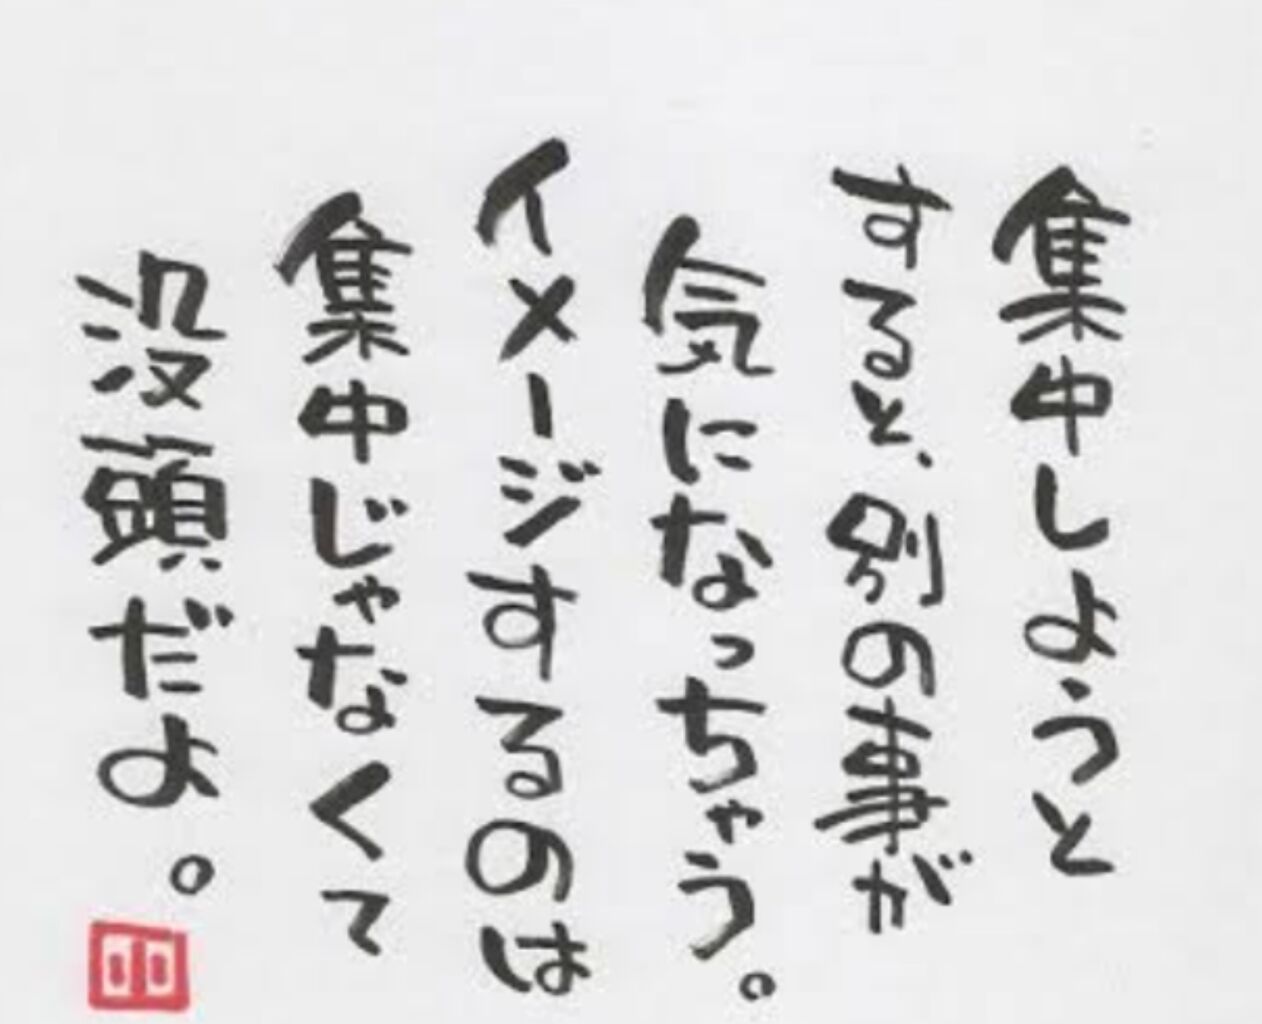 集中しようと
すると、別の事が
気になっちゃう。
イメージするのは
集中じゃなくて
没頭だよ。